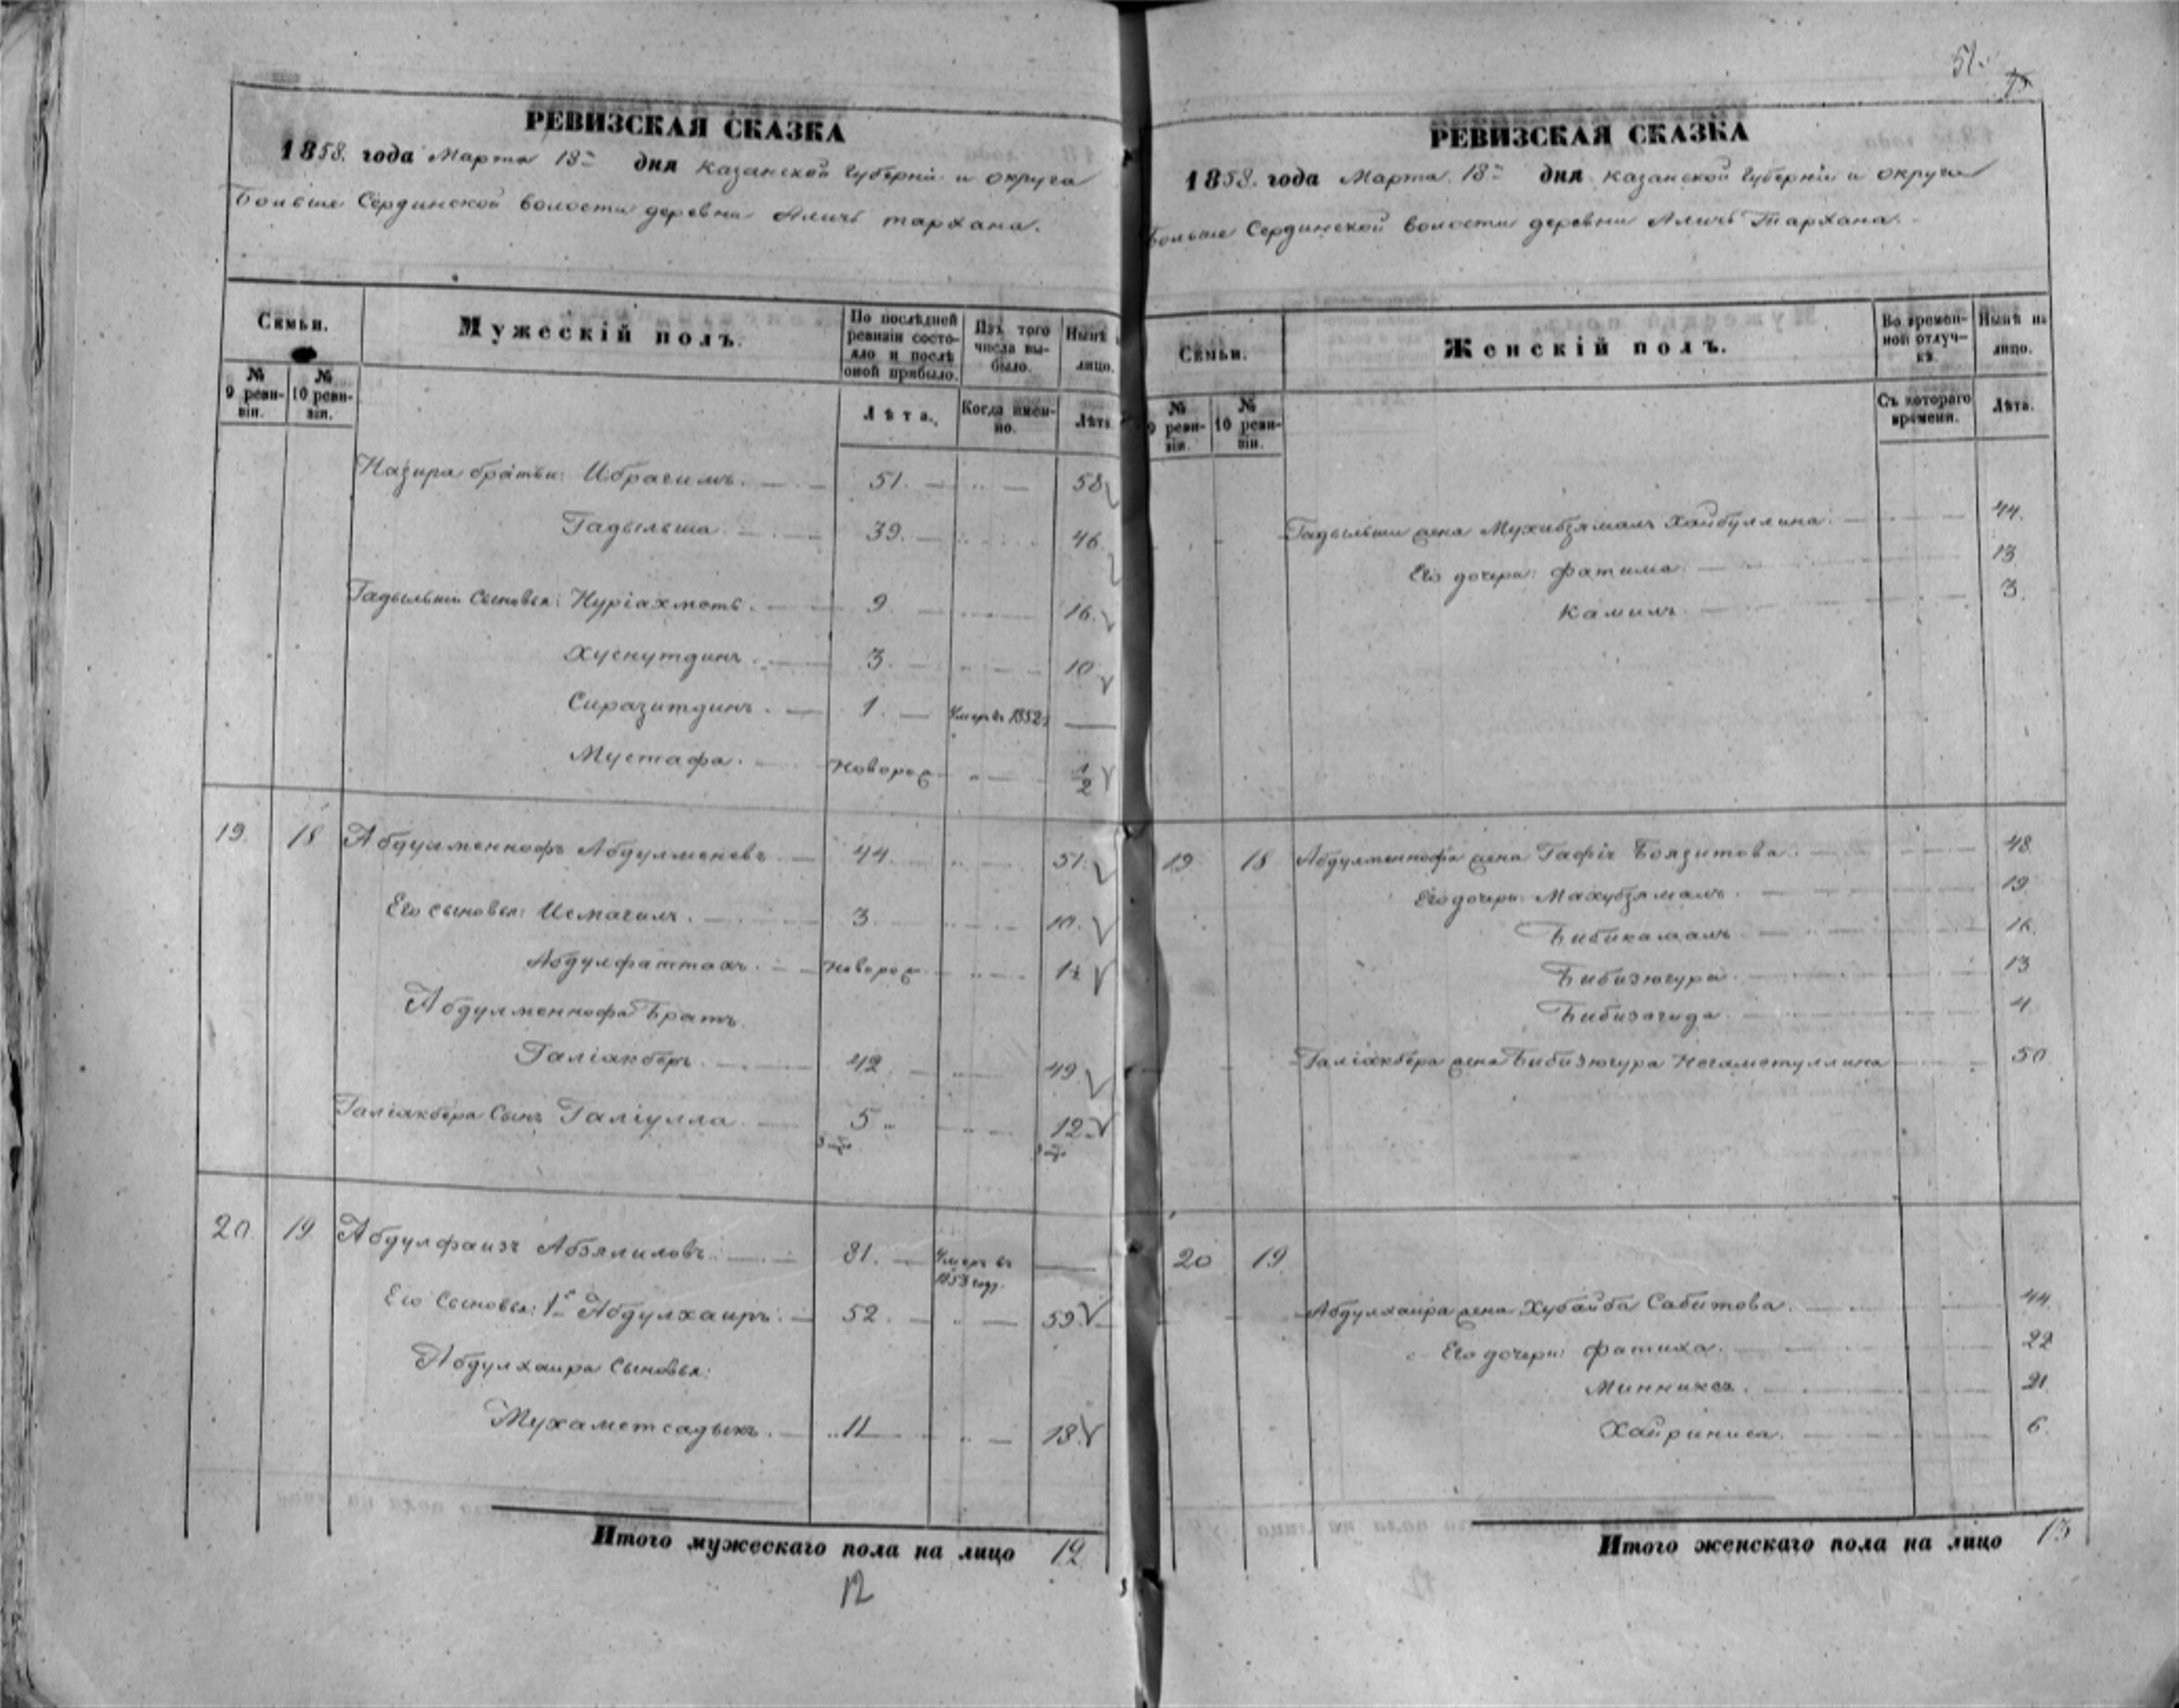 РЕВИЗСКАЯ СКАЗКА
1858. года Марта 18 дня Казанской Губерніи и округа
Больше Сердинской волости деревни Аличъ тархана.
Семьи.
Мужескій полъ.
По послѣдней ревизіи состояло и послѣ оной прибыло.
Изъ того числа выбыло.
Нынѣ лицо.
№ 9 ревизіи.
№ 10 ревизіи.
Лѣта.
Когда именно.
Лѣта
Назира братья: Ибрагимъ. 51. 58
Гадыльша 39. 46.
Гадыльши Сыновья: Нуріахметъ. 9. 16.
Хуснутдинъ. 3. 10.
Сиразитдинъ. 1. Умеръ въ 1852
Мустафа. Новорож 1/2
19. 18 Абдулменнофъ Абдулменевъ 44. 51.
Его сыновья: Исмагилъ. 3. 10.
Абдулфаттахъ. Новорож
Абдулменнофа Братъ
Галіакберъ. 42. 49
Галіакбера Сынъ Галіулла 5 12
20. 19 Абдулфаизъ Абзялиловъ 81. Умеръ въ 1853 году.
Его Сыновья: 1й Абдулхаиръ. 52. 59
Абдулхаира Сыновья:
Мухаметсадыкъ. 11 18
Итого мужескаго пола на лицо 12
12
51.
РЕВИЗСКАЯ СКАЗКА
1858. года Марта 18 дня Казанской Губерніи и округа
Больше Сердинской волости деревни Аличъ Тархана.
Семьи.
Женскій полъ.
Во временной отлучкѣ.
Нынѣ на лицо.
№ 9 ревизіи.
№ 10 ревизіи.
Съ котораго времени.
Лѣта.
Гадыльши жена Мухибзямалъ Хайбуллина. 44.
Его дочери: Фатима 13
Камилъ. 3.
19 18 Абдулменнофа жена Гафія Боязитова. 48
Его дочери: Махубзямалъ 19
Бибикамалъ 16.
Бибизюгура 13
Бибизагида 4.
Галіакбера жена Бибизюгура Негаметуллина 50
20 19
Абдулхаира жена Хубайба Сабитова. 44.
Его дочери: Фатиха. 22
21.
Хайриниса. 6.
Итого женскаго пола на лицо 13